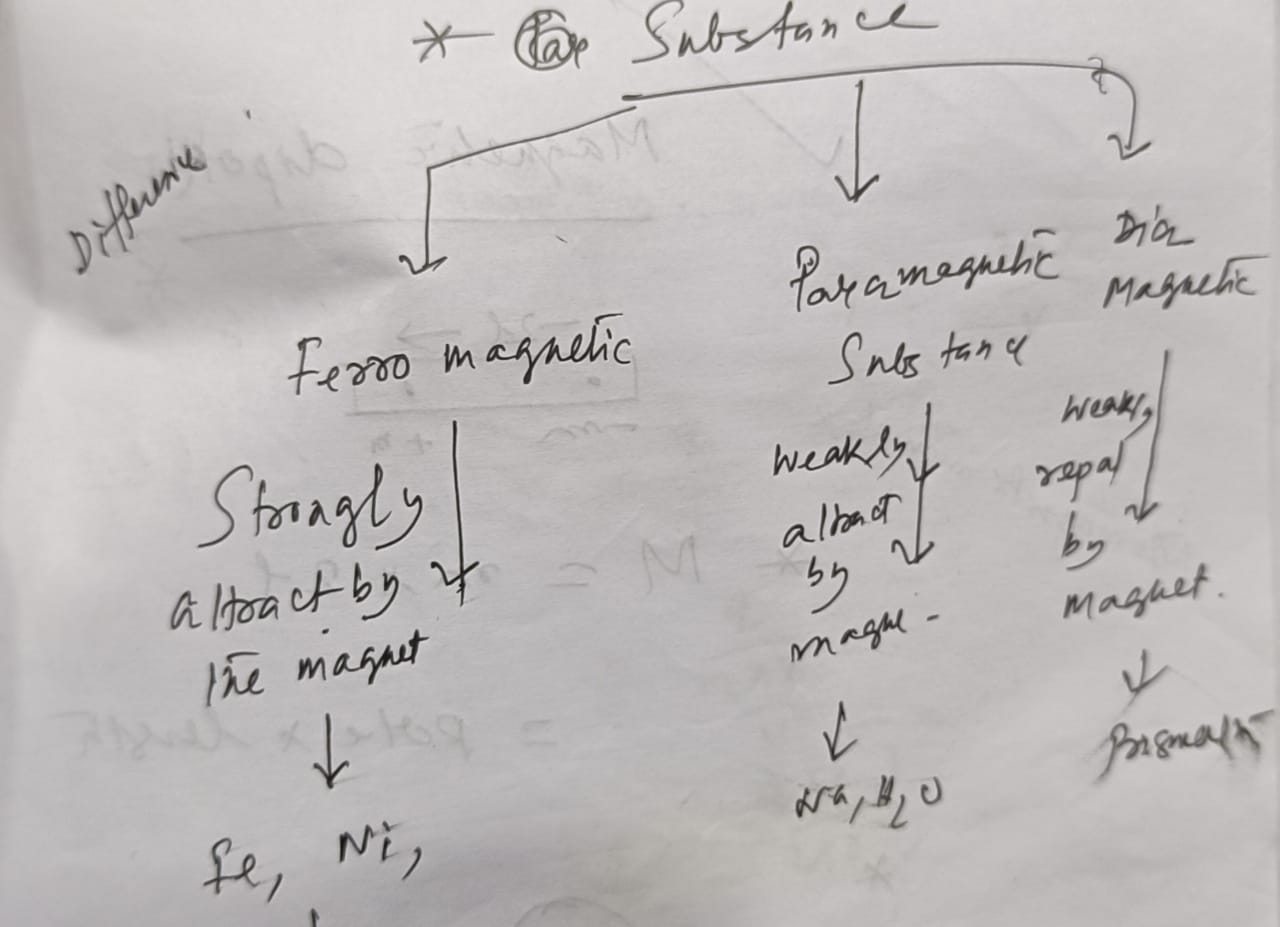 * Substance
Difference
Ferro magnetic
Strongly
attract by
the magnet
Fe, Ni,
Paramagnetic
Substance
weakly
attract
by
magne -
Na, H2O
Dia
Magnetic
weakly
repal
by
Magnet.